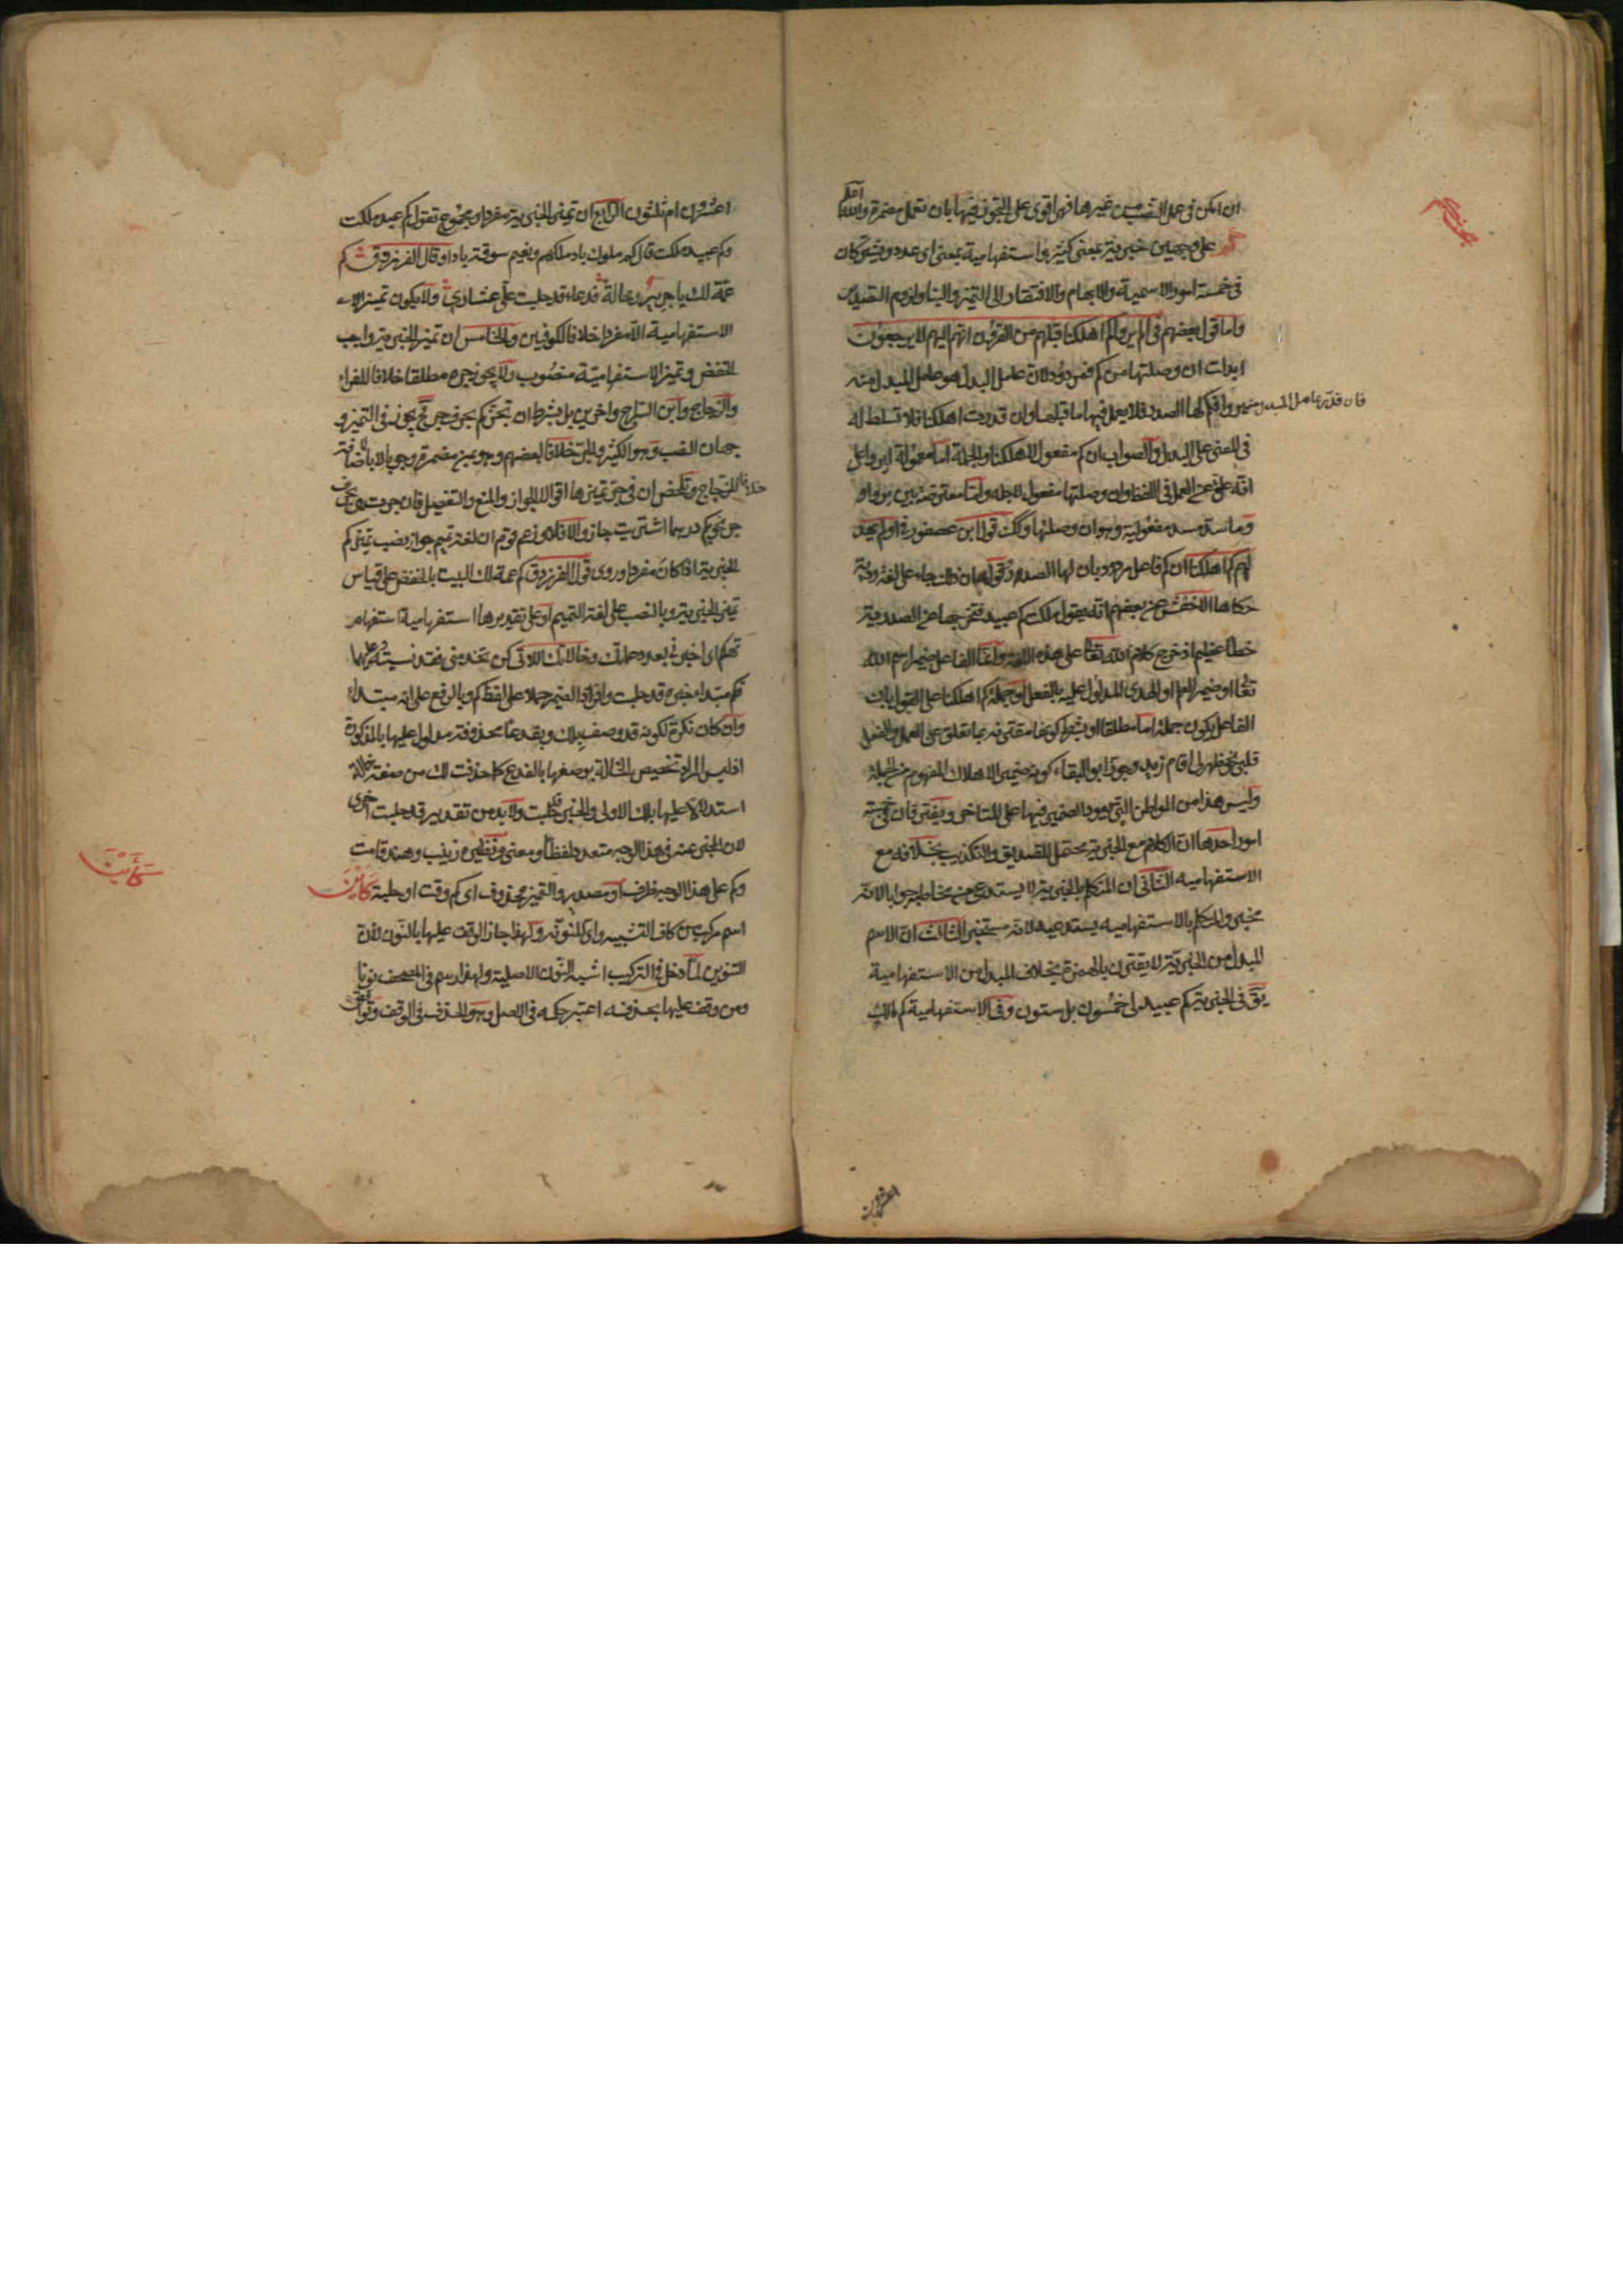 ان امكن فى عمل النصب من غيرها فهى اقوى على التجوز فيها بان تعمل مضمرة والله اعلم
كم على وجهين خبرية بمعنى كثير واستفهامية بمعنى اى عدد ويشتركان
فى خمسة امور الاسمية والابهام والافتقار الى التميز والبناء ولزوم التصدير
واما قول بعضهم فى الم يروا كم اهلكنا قبلهم من القرون انهم اليهم لا يرجعون
ابدلت ان وصلتها من كم فمردود لان عامل البدل هو عامل المبدل منه
فان قدر عامل المبدل منه يروا فكم لها الصدر فلا يعمل فيها ما قبلها وان قدرت اهلكنا فلا تسلط له
فى المعنى على البدل والصواب ان كم مفعول لاهلكنا والجملة اما معمولة ليروا على
انه علق عن العمل فى اللفظ وان وصلتها مفعول لاجله واما معترضة بين يروا
وما سد مسد مفعوليه وهو ان وصلتها وكك قول ابن عصفور فى اولم يهد
لهم كم اهلكنا ان كم فاعل مردود بان لها الصدر وقوله ان ذلك جاء على لغة رديئة
حكاها الاخفش عن بعضهم انه يقول ملكت كم عبيد فتخرجها عن الصدرية
خطأ عظيم اذ خرج كلام الله تعا على هذه اللغة وانما الفاعل ضمير اسم الله
تعا او ضمير العلم او الهدى المدلول عليه بالفعل او جملة كم اهلكنا على القول بان
الفاعل يكون جملة اما مطلقا او بشرط كونها مقترنة بما تعلق عن العمل والفعل
قلبى نحو ظهر لى اقام زيد وجوز ابو البقاء كونه ضمير الاهلاك المفهوم من الجملة
وليس هذا من المواطن التى يعود الضمير فيها على المتاخر ويفترقان فى خمسة
امور احدها ان الكلام مع الخبرية محتمل للتصديق والتكذيب بخلافه مع
الاستفهامية الثانى ان المتكلم بالخبرية لا يستدعى من مخاطبه جوابا لانه
مخبر والمتكلم بالاستفهامية يستدعيه لانه مستخبر الثالث ان الاسم
المبدل من الخبرية لا يقترن بالهمزة بخلاف المبدل من الاستفهامية
يق فى الخبرية كم عبيد لى خمسون بل ستون وفى الاستفهامية كم مالك
اعشرون
اعشرون ام ثلثون الرابع ان تميز الخبرية مفرد او مجموع تقول كم عبد ملكت
وكم عبيد ملكت قال كم ملوك باد ملكهم ونعيم سوقة بادا وقال الفرزدق كم
عمة لك يا جرير وخالة فدعاء قد حلبت على عشارى ولا يكون تميز
الاستفهامية الا مفردا خلافا للكوفيين والخامس ان تميز الخبرية واجب
الخفض وتميز الاستفهامية منصوب ولا يجوز جره مطلقا خلافا للفراء
والزجاج وابن السراج واخرين بل بشرط ان تجر كم بحرف جر فح يجوز فى التميز
وجهان النصب وهو الكثير والجر خلافا لبعضهم وهو بمن مضمرة وجوبا لا بالاضافة
خلافا للزجاج وتلخص ان فى جر تميزها اقوالا الجواز والمنع والتفصيل فان جرت هى بحرف
جر نحو بكم درهم اشتريت جاز والا فلا وزعم قوم ان لغة تميم جواز نصب تميز كم
الخبرية اذا كان مفردا وروى قول الفرزدق كم عمة لك البيت بالخفض على قياس
تميز الخبرية وبالنصب على لغة التميم او على تقديرها استفهامية استفهام
تهكم اى اخبرنى بعدد عماتك وخالاتك اللاتى كن تخدمنى فقد نسيته وعليهما
فكم مبتداء خبره قد حلبت وافراد الضمير حملا على لفظ كم وبالرفع على انه مبتداء
وان كان نكرة لكونه قد وصف بلك وبفدعاء محذوفة مدلول عليها بالمذكورة
اذ ليس المراد تخصيص الخالة بوصفها بالفدع كما حذفت لك من صفة خالة
استدلالا عليها بلك الاولى والخبر قد حلبت ولا بد من تقدير قد حلبت اخرى
لان المخبر عنه فى هذا الوجه متعدد لفظا ومعنى ونظيره زينب وهند قامت
وكم على هذا الوجه ظرف او مصدر والتميز محذوف اى كم وقت او حلبة كاين
اسم مركب من كاف التشبيه واى المنونة ولهذا جاز الوقف عليها بالنون لان
التنوين لما دخل فى التركيب اشبه النون الاصلية ولهذا رسم فى المصحف نونا
ومن وقف عليها بحذفه اعتبر حكمه فى الاصل وهو الحذف فى الوقف
كاين